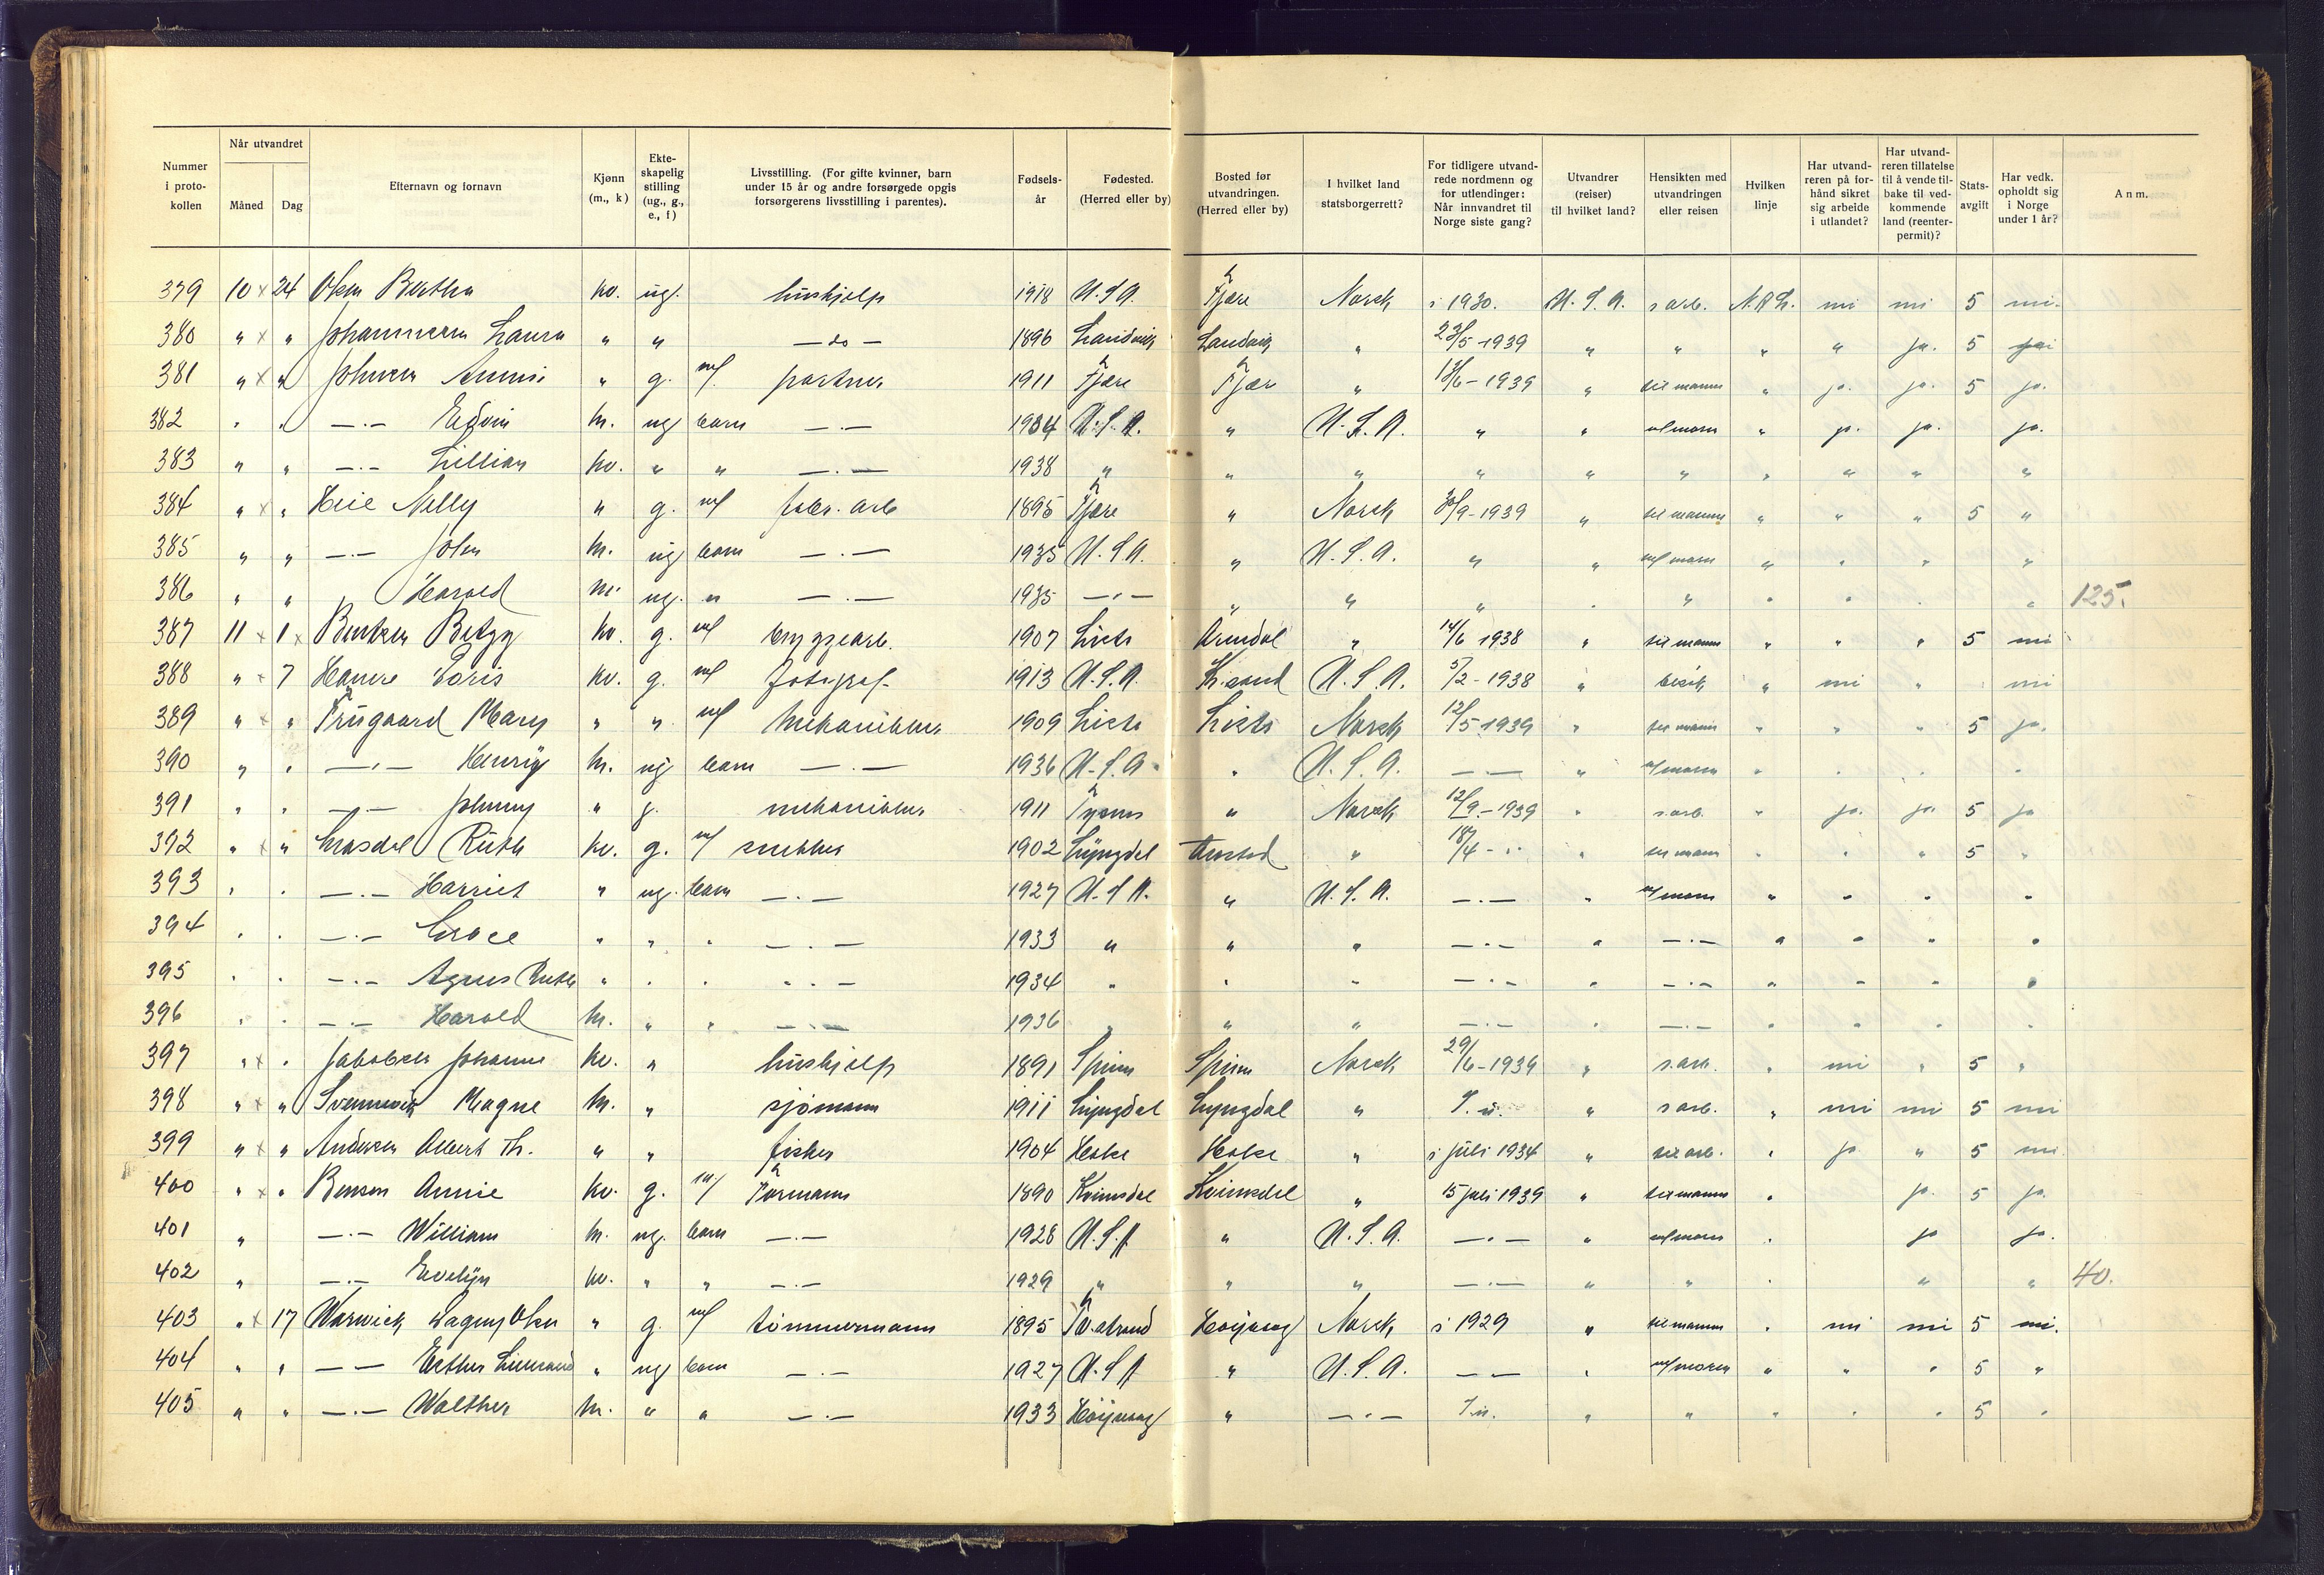 Nummer i proto-kollen | Når utvandret Måned Dag | Efternavn og fornavn | Kjønn (m., k) | Ekte-skapelig stilling (ug., g., e., f) | Livsstilling. (For gifte kvinner, barn under 15 år og andre forsørgede opgis forsørgerens livsstilling i parentes). | Fødsels-år | Fødested. (Herred eller by) | Bosted før utvandringen. (Herred eller by) | I hvilket land statsborgerrett? | For tidligere utvand-rede nordmenn og for utlendinger: Når innvandret til Norge siste gang? | Utvandrer (reiser) til hvilket land? | Hensikten med utvandringen eller reisen | Hvilken linje | Har utvand-reren på for-hånd sikret sig arbeide i utlandet? | Har utvand-reren tillatelse til å vende til-bake til ved-kommende land (reenter-permit)? | Stats-avgift | Har vedk. opholdt sig i Norge under 1 år? | Anm.
379 10 x 24 Olsen Bertha kv. ug. hushjelp 1918 U.S.A. Fjære Norsk i 1930. U.S.A. s arb. N.A.L. nei nei 5 nei.
380 " x " Johannesen Laura " " —do— 1896 Landvik Landvik " 23/5-1939 " " " " ja. 5
381 " x " Johnsen " g. m/ 1911 Fjære Fjære " /6-1939 " til mann " ja. ja. 5 ja.
382 " " —.— Edvin m. ug barn —.— 1934 U.S.A. " U.S.A. " " m/moren " ja. ja. ja.
383 " " —.— Lillian kv. " " —.— 1938 " " " " " " " " " "
384 " x " Heie Nelly " g. m/ fabr. arb 1895 Fjære " Norsk 30/9-1939 " til mannen " " " 5 "
385 " " —.— John m. ug barn —.— 1935 U.S.A. " U.S.A. " " m/moren " " " "
386 " " " Harold m. ug. " —.— 1935 —.— " " " " " " " " " 125.
387 11 x 1 x Bentsen Betzy kv. g. m/ bryggearb. 1907 Lista Arendal " 14/6 1938 " til mannen " " " 5 nei
388 " x 7 Hamre Doris kv. g. m/ fotograf 1913 U.S.A. Kr.sand U.S.A. 5/2-1938 " besøk " nei " nei
389 " x " Friisgaard Mary " " m/ mekaniker 1909 Lista Lista Norsk 12/5-1939 " til mann " " " 5 ja.
390 " " —.— Henry m. ug barn —.— 1936 U.S.A. " U.S.A. —.— " m/moren " " " "
391 " " —.— Johnny " g. mekaniker 1911 Tysnes " Norsk 12/9-1939 " s.arb. " ja. ja 5 ja
392 " x " Ruth kv. g. m/ snekker 1902 Lyngdal " 18/4-" " til mann " " " 5 "
393 " " —.— Harriet " ug. barn —.— 1927 U.S.A. " U.S.A. —.— " m/moren " " " "
394 " " —.— Grace " " " —.— 1933 " " " —.— " —.— " " " "
395 " " —.— Agnes Ruth " " " —.— 1934 " " " —.— " —.— " " " "
396 " " —.— Harold m. " " —.— 1936 " " " —.— " —.— " " " "
397 " x " Jakobsen Johanne kv. " hushjelp 1891 Spinn Spinn Norsk 29/6-1939 " s.arb. " nei " 5 "
398 " x " Svennevik Magne m. " sjømann 1911 Lyngdal Lyngdal " I.u. " s arb. " nei nei 5 nei
399 " x " Andersen Albert Th. " " fisker 1904 " i juli 1934 " til arb. " ja " 5 nei
400 " x " Benson Annie kv. g. m/ Formann 1890 Kvinesdal Kvinesdal " 15 juli 1939 " til mannen " ja. 5 ja.
401 " —.— William m. ug. barn —.— 1928 U.S.A " U.S.A. —.— " m/moren " ja ja.
402 " —.— Evelyn kv. " " —.— 1929 " " " —.— " " " " " 40.
403 " x 17 Warwick Dagny Olsen " g. m/ tømmermann 1895 Tv.strand Høivaag Norsk i 1929 " til mannen " nei nei 5 nei.
404 " " —— Esther " ug barn —.— 1927 U.S.A " U.S.A. —— " m/moren " " " 5 "
405 " " —.— Walther m. " " —.— 1933 Høivaag " —.— I.u. " " " " " 5 "